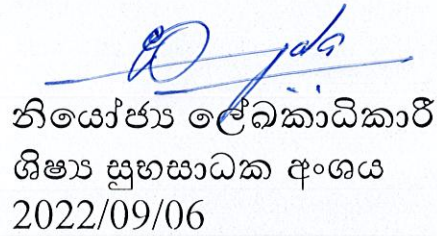 නියෝජ්‍ය ලේඛකාධිකාරී
ශිෂ්‍ය සුභසාධක අංශය
2022/09/06